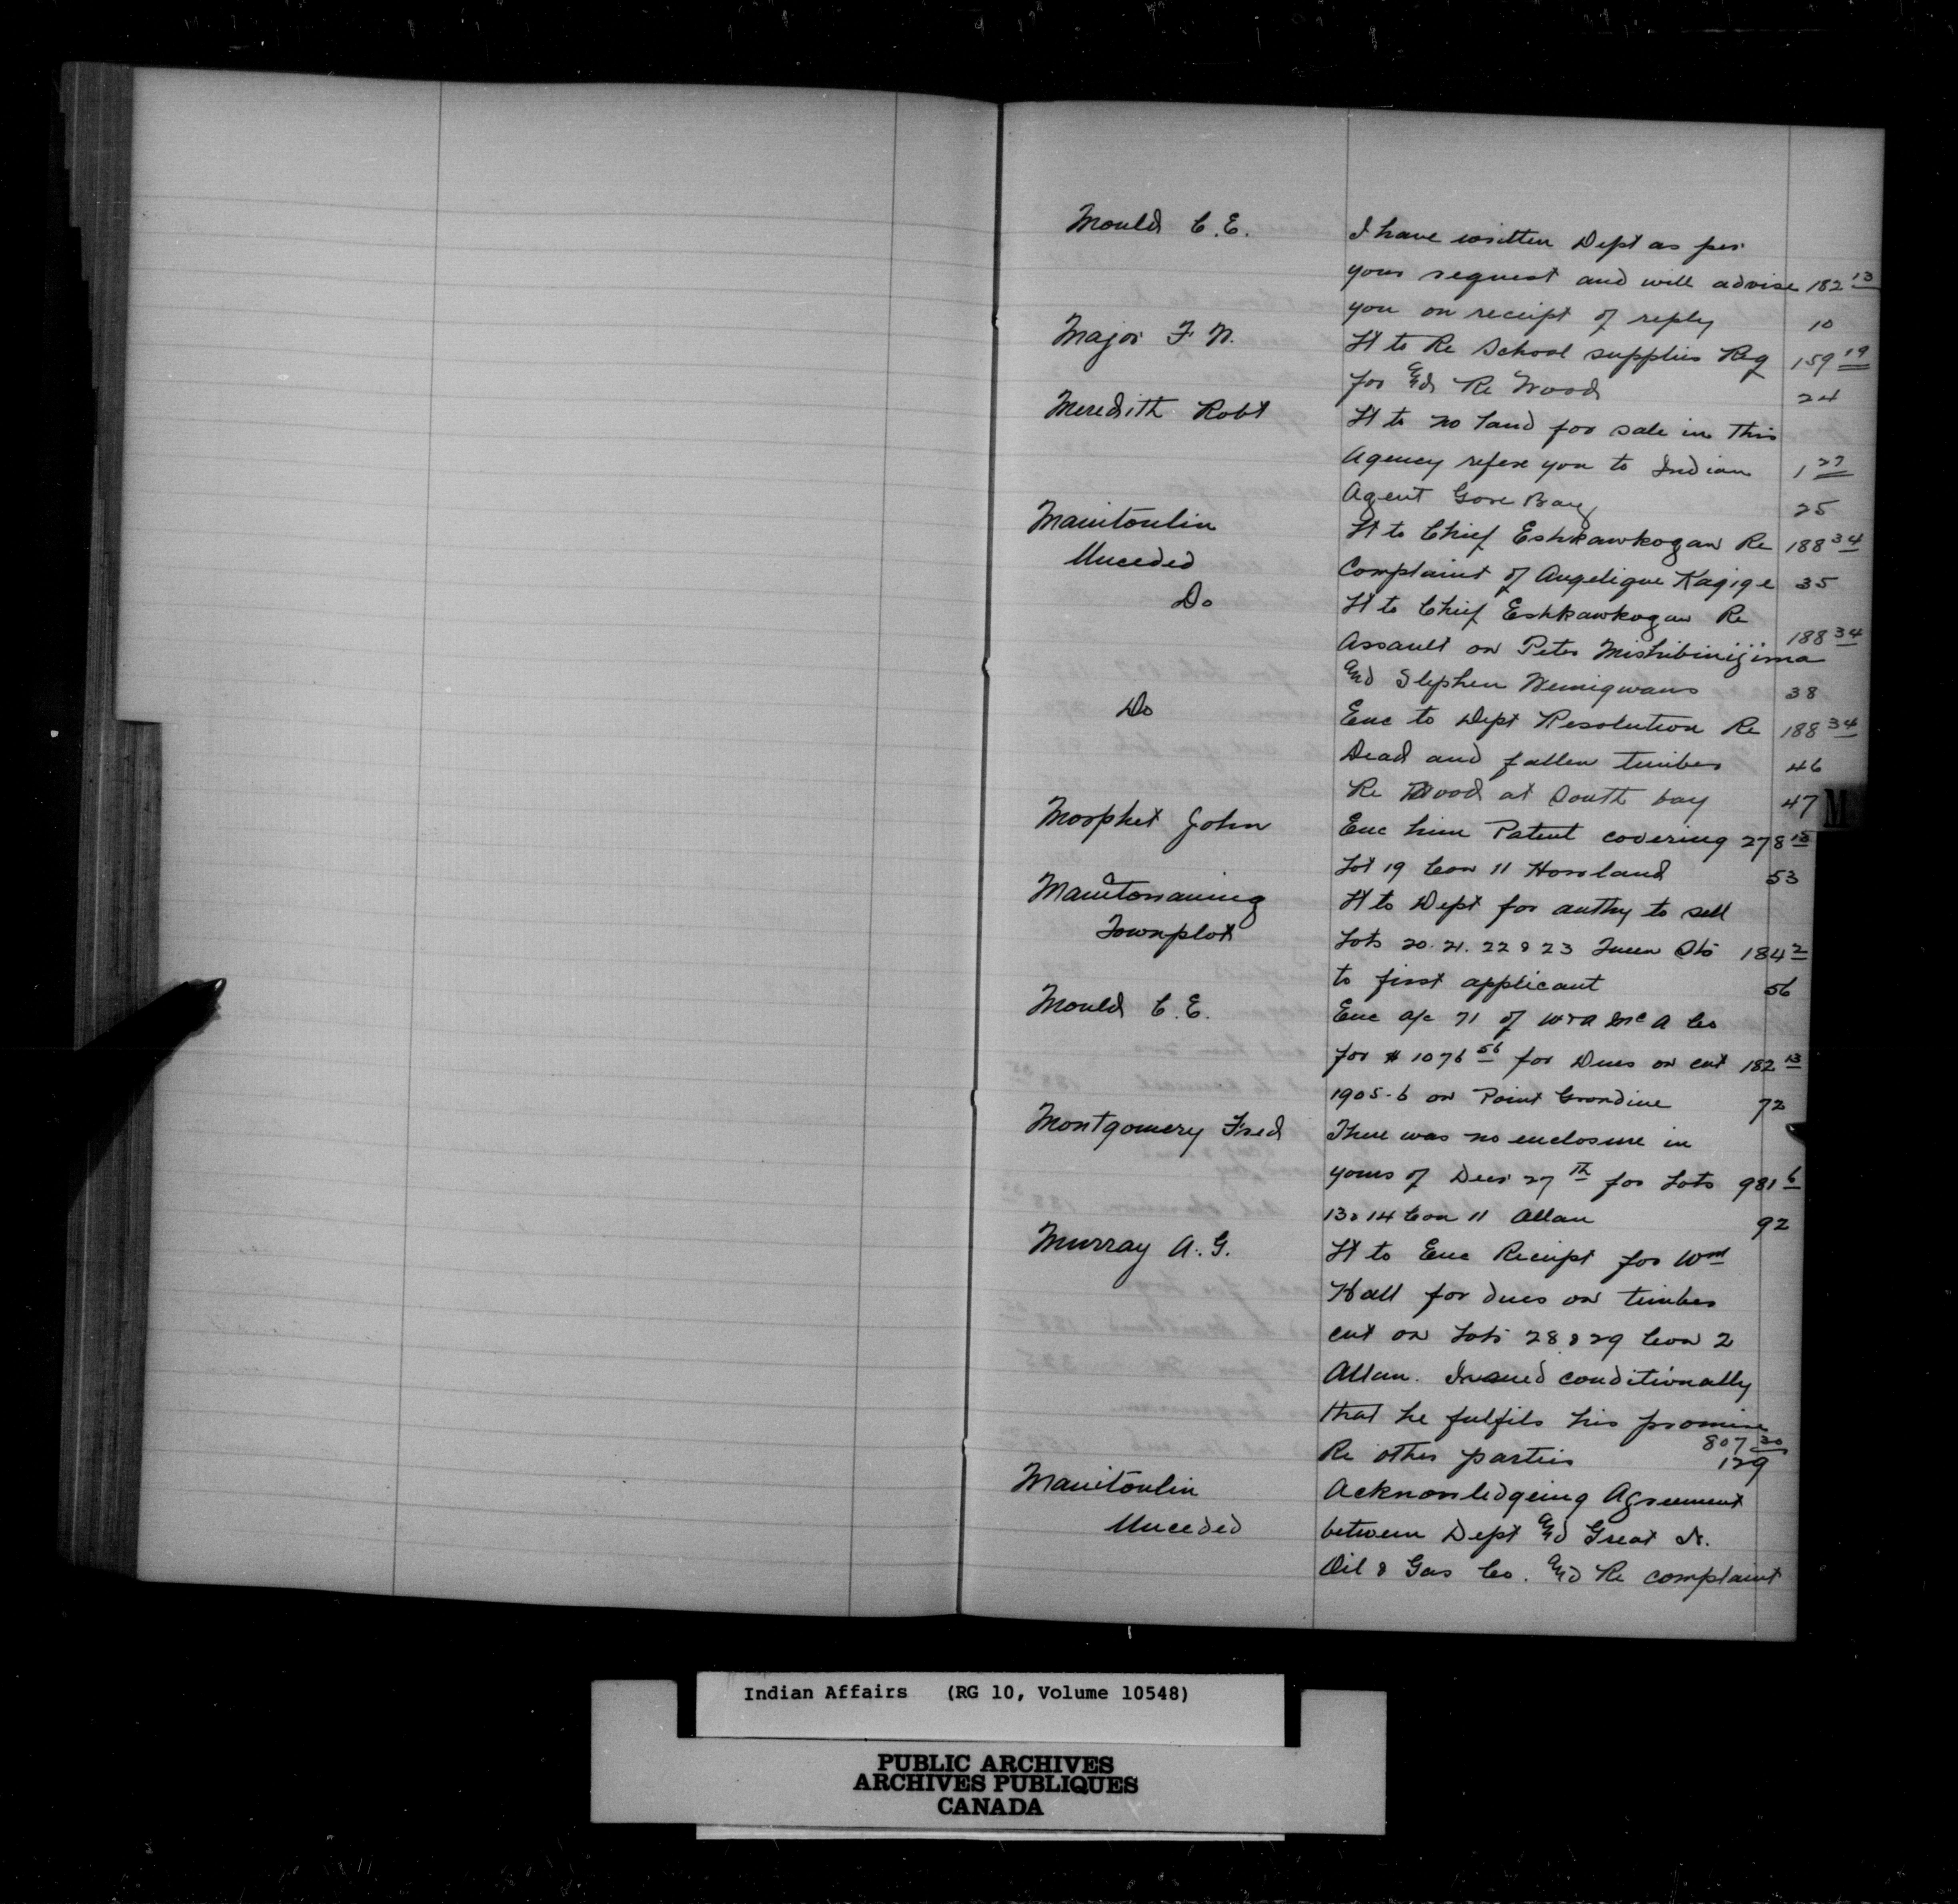 Mould C. E. I have written Dept as per
your request and will advise 182 13
you on receipt of reply 10
Major F. W. Lt to Re School supplies Req 159 19
for And Re Wood 24
Meredith Robt Lt to no land for sale in this
Agency refere you to Indian 1 27
Agent Gore Bay 25
Manitoulin Lt to Chief Eshkawkogan Re 188 34
Unceded Complaint of Angelique Kagige 35
Do Lt to Chief Eshkawkogan Re
Assault on Peter Mishibinijima 188 34
And Stephen Wemigwans 38
Do Enc to Dept Resolution Re 188 34
Dead and fallen timber 46
Re Wood at South bay 47
M
Morphet John Enc him Patent covering 278 15
Lot 19 Con 11 Howland 53
Manitowaning Lt to Dept for authy to sell
Townplot Lots 20. 21. 22 & 23 Queen Sts 184 2
to first applicant 56
Mould C. E. Enc a/c 71 of W & A McA Co
for $ 1076 56 for Dues on cut 182 13
1905-6 on Point Grondine 72
Montgomery Fred There was no enclosure in
yours of Decr 27 Th for Lots 981 6
13 & 14 Con 11 Allan 92
Murray A. G. Lt to Enc Receipt for Wm
Hall for dues on timber
cut on Lots 28 & 29 Con 2
Allan. Issued conditionally
that he fulfils his promise
Re other parties 807 30
129
Manitoulin Acknowledgeing Agreement
Unceded between Dept And Great N.
Oil & Gas Co. And Re complaint
Indian Affairs (RG 10, Volume 10548)
PUBLIC ARCHIVES
ARCHIVES PUBLIQUES
CANADA